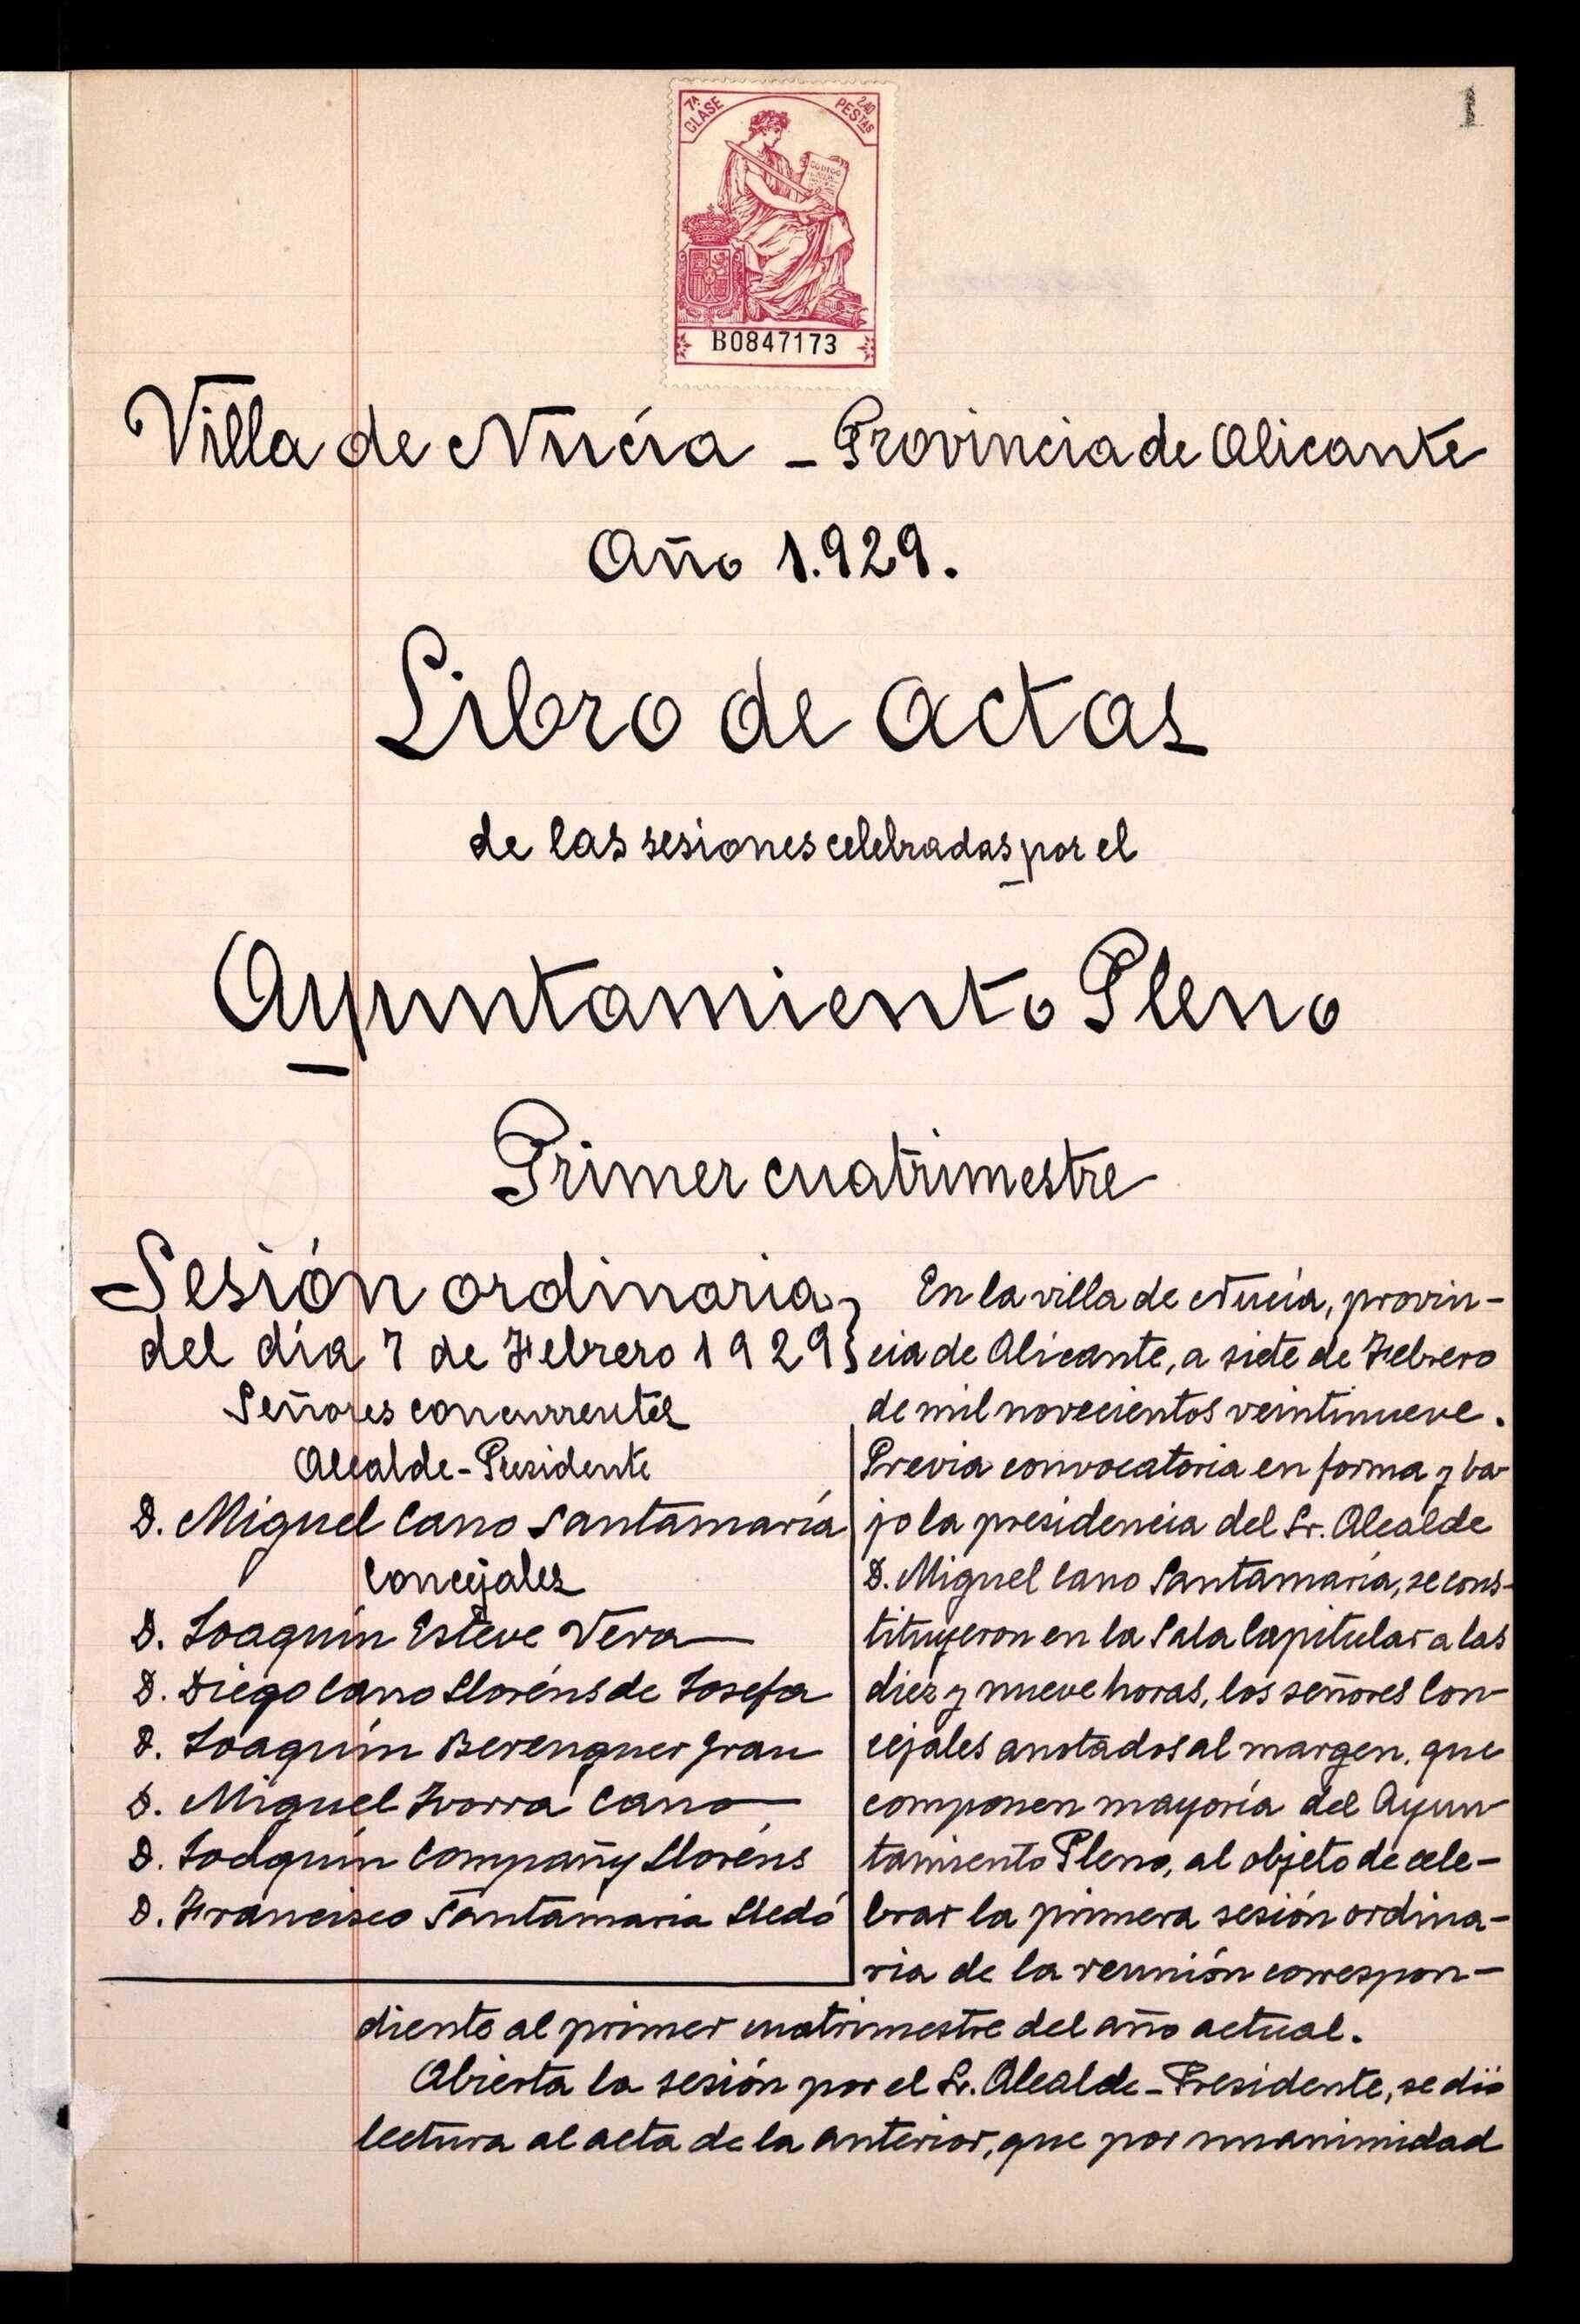 1
7ª CLASE
240 PESTAS
CODIGO
B0847173
Villa de Nucía - Provincia de Alicante
Año 1.929.
Libro de actas
de las sesiones celebradas por el
Ayuntamiento Pleno
Primer cuatrimestre
Sesión ordinaria
del día 7 de Febrero 1929
Señores concurrentes
Alcalde-Presidente
D. Miguel Cano Santamaría
Concejales
D. Joaquín Esteve Vera
D. Diego Cano Lloréns de Josefa
D. Joaquín Berenguer Grau
D. Miguel Ivorra Cano
D. Joaquín Compañy Lloréns
D. Francisco Santamaria Lledó
En la villa de Nucía, provin-
cia de Alicante, a siete de Febrero
de mil novecientos veintinueve.
Previa convocatoria en forma y ba-
jo la presidencia del Sr. Alcalde
D. Miguel Cano Santamaría, se cons-
tituyeron en la Sala Capitular a las
diez y nueve horas, los señores Con-
cejales anotados al margen, que
componen mayoría del Ayun-
tamiento Pleno, al objeto de cele-
brar la primera sesión ordina-
ria de la reunión correspon-
diente al primer cuatrimestre del año actual.
Abierta la sesión por el Sr. Alcalde-Presidente, se dió
lectura al acta de la anterior, que por unanimidad